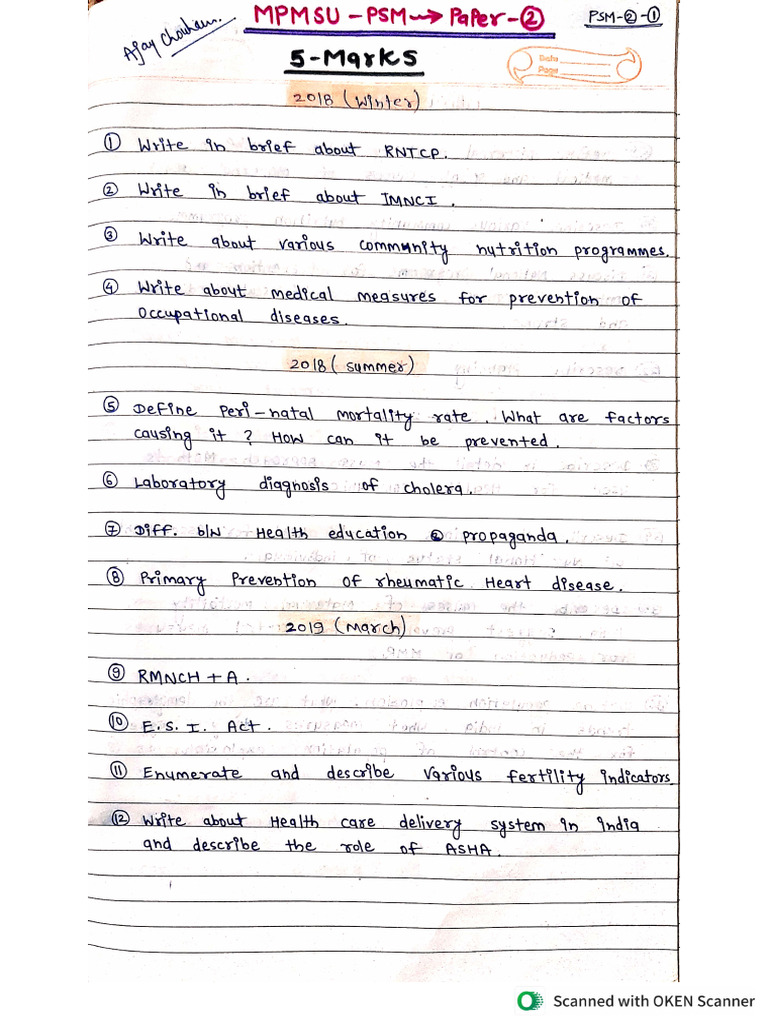 Ajay Chouhan.
MPMSU - PSM → Paper - ②
PSM-②-①
5-Marks
Date
Page
2018 (Winter)
① Write in brief about RNTCP.
② Write in brief about IMNCI.
③ Write about various community nutrition programmes.
④ Write about medical measures for prevention of
occupational diseases.
2018 (summer)
⑤ Define Peri-natal mortality rate. What are factors
causing it? How can it be prevented.
⑥ Laboratory diagnosis of cholera.
⑦ Diff. b/w Health education & propaganda.
⑧ Primary Prevention of rheumatic Heart disease.
2019 (March)
⑨ RMNCH + A.
⑩ E.S.I. Act.
⑪ Enumerate and describe various fertility indicators
⑫ Write about Health care delivery system in India
and describe the role of ASHA.
Scanned with OKEN Scanner